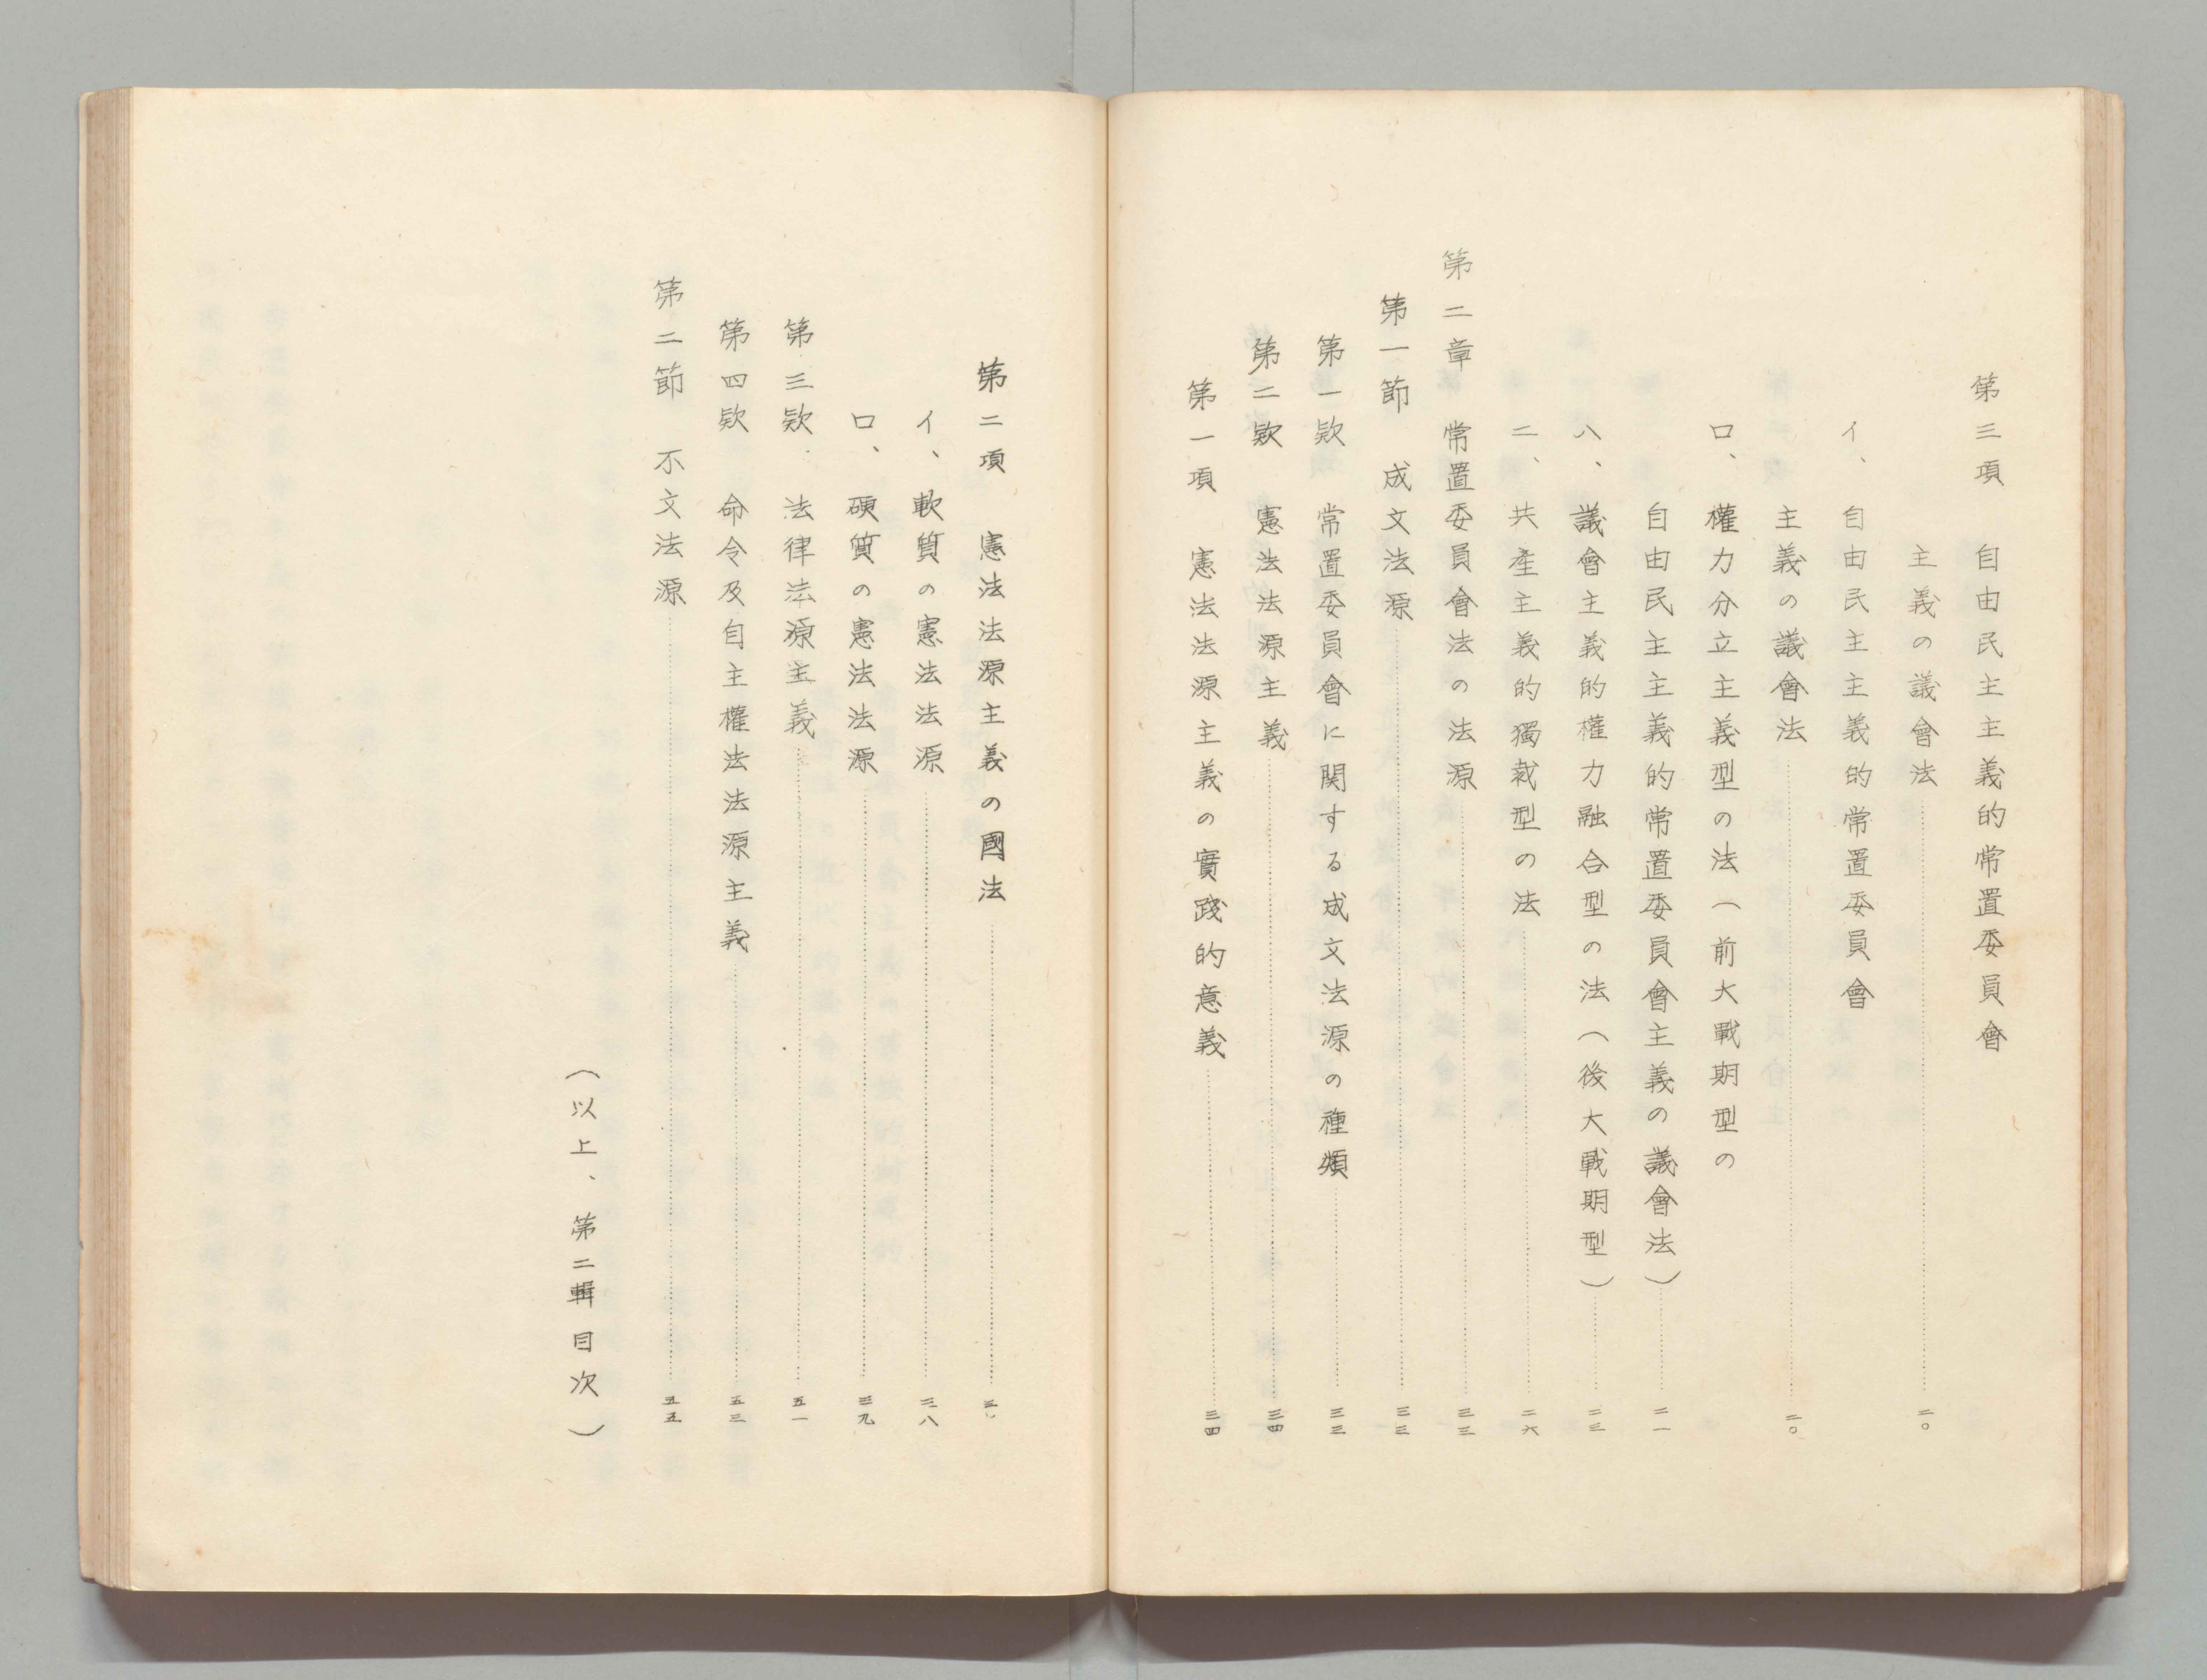 第三項　自由民主主義的常置委員會
主義の議會法……二〇
イ、自由民主主義的常置委員會
主義の議會法……二〇
ロ、權力分立主義型の法（前大戰期型の
自由民主主義的常置委員會主義の議會法）……二一
ハ、議會主義的權力融合型の法（後大戰期型）……二三
ニ、共產主義的獨裁型の法……二六
第二章　常置委員會法の法源……三三
第一節　成文法源……三三
第一欵　常置委員會に関する成文法源の種類……三三
第二欵　憲法法源主義……三四
第一項　憲法法源主義の實踐的意義……三四
第二項　憲法法源主義の國法……
イ、軟質の憲法法源……三八
ロ、硬質の憲法法源……三九
第三欵　法律法源主義……五一
第四欵　命令及自主權法法源主義……五三
第二節　不文法源……五五
（以上、第二輯目次）